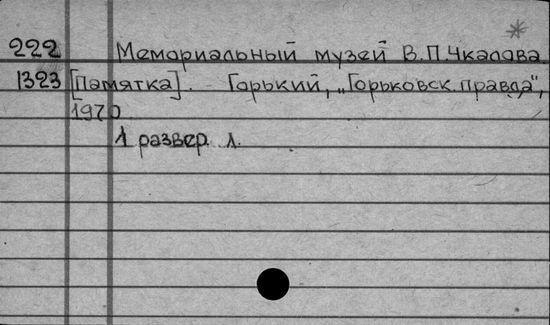 *
222 Мемориальный музей В.П.Чкалова
1323 [Памятка]. Горький, „Горьковск. правда",
1970
1 развер. л.